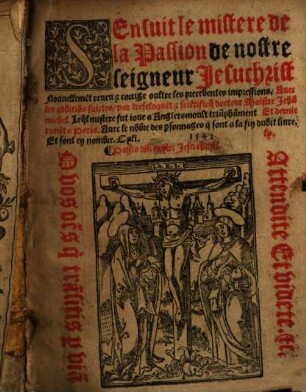 SEnsuit le mistere de
la Passion de nostre
seigneur Jesuchrist
Nouuellemēt reueu ⁊ corrige oultre les precedentes impressions. Auec
les additiōs faictes par treseloquēt ⁊ scientificq̄ docteur Maistre Jehā
michel. Leq̄l mistere fut ioue a Angiers moult triūphāment Et derniere
mēt a Paris. Auec le nōbre des psonnages q̄ sont a la fin dudit liure.
Et sont en nombre. Cxli.
1542
Passio dñi nostri Jesu christi.
O vos oēs q̄ trāsitis p viā
Attendite Et videte. Et